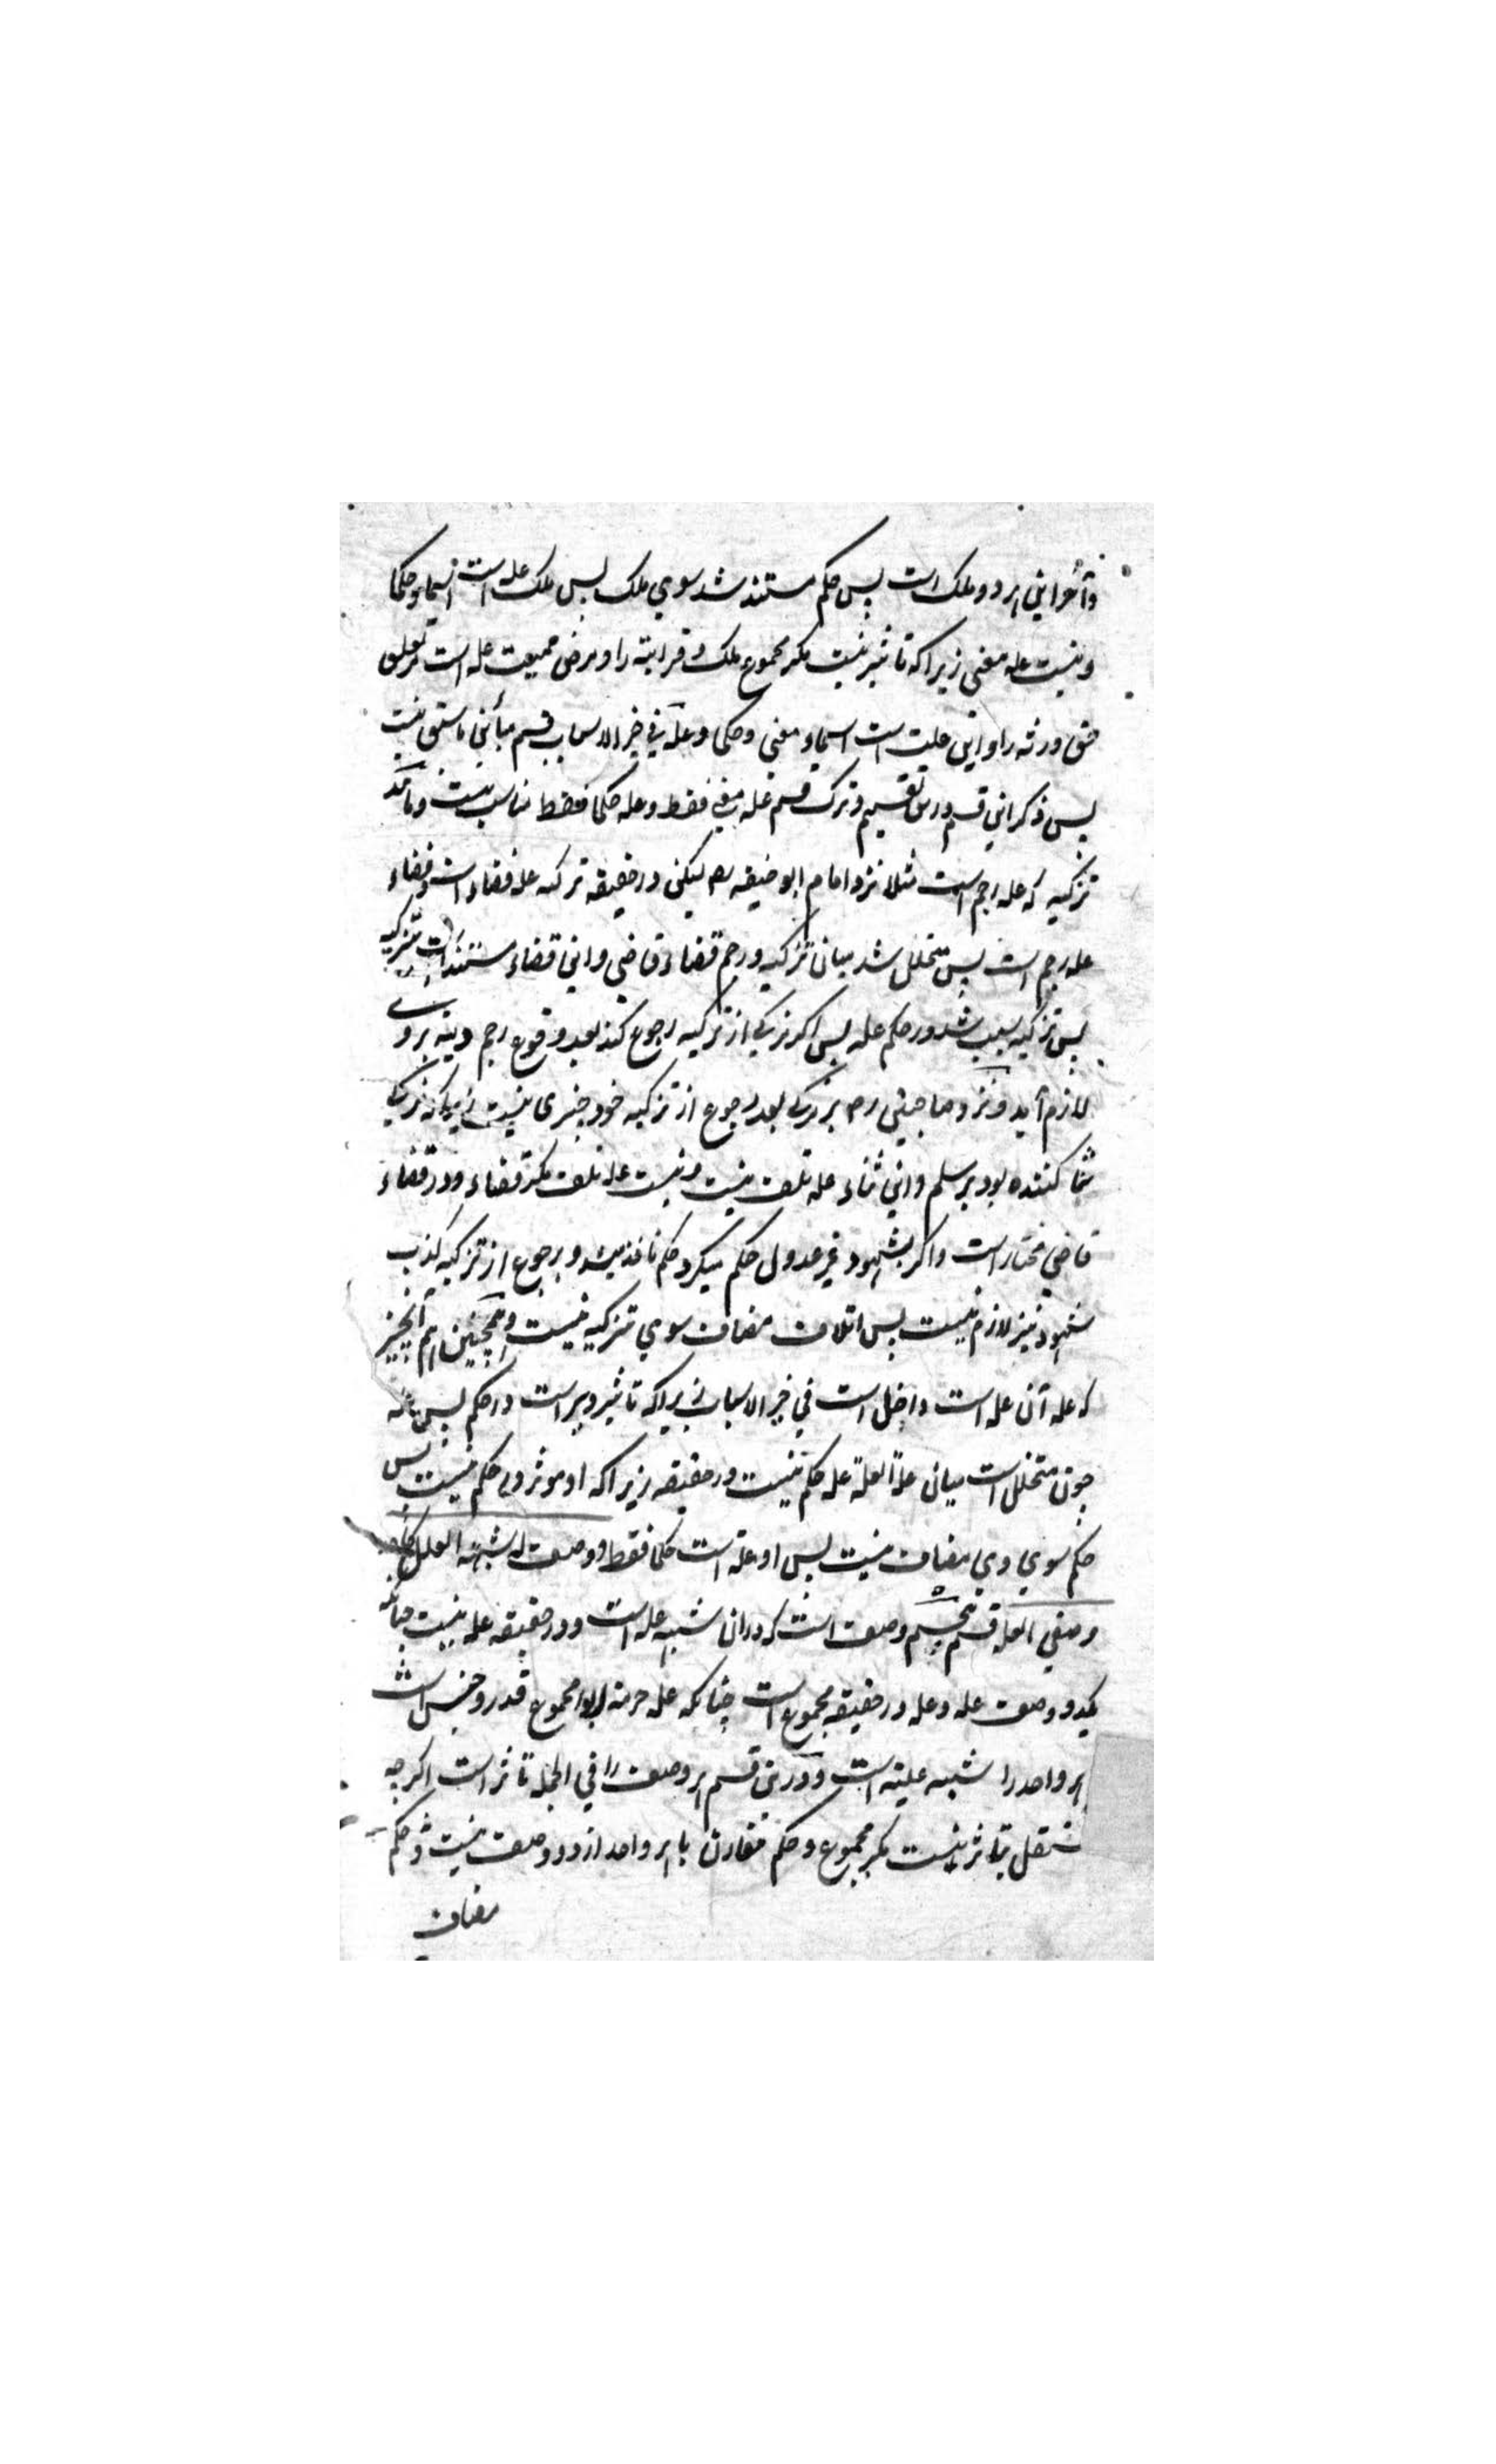 و آخر این هر دو ملک است پس حکم مستند شد سوی ملک پس ملک علة است اسما و حکما
و نیست علة معنی زیراکه تاثیر نیست مکر مجموع ملک و قرابة را و مرض ممیت علة است مر تعلق
حق ورثه را و این علیت است اسما و معنی و حکما و علة فی حیز الاسباب قسم مباین ما سبق نیست
پس ذکر این قسم درین تقسیم و ترک قسم علة معنی فقط و علة حکما فقط مناسب نیست و مانند
تزکیه که علة رجم است مثلا نزد امام ابو حنیفه رح لیکن در حقیقة تزکیه علة قضاء است و قضاء
علة رجم است پس متخلل شد میان تزکیه و رجم قضاء قاضی و این قضاء مستند است بتزکیه
پس تزکیه سبب شد در حکم علة پس اکر مزکی از تزکیه رجوع کند بعد وقوع رجم دیة بروی
لازم آید و نزد صاحبین رح بر مزکی بعد رجوع از تزکیه خود چیزی نیست زیراکه مزکی
ثنا کننده بود بر مسلم و این ثناء علة تلف نیست و نیست علة تلف مکر قضاء و در قضاء
قاضی مختار است و اکر بشهود غیر عدول حکم میکرد حکم نافذ میشد و برجوع از تزکیه کذب
شهود نیز لازم نیست پس اتلاف مضاف سوی تزکیه نیست و همچنین هر آنچیز
که علة آن علة است داخل است فی حیز الاسباب زیراکه تاثیر ویراست در حکم پس علة
چون متخلل است میان علة العلة علة حکم نیست در حقیقة زیراکه او موثر در حکم نیست پس
حکم سوی وی مضاف نیست پس او علة است حکما فقط و وصف له شبهة العلل کاحد
وصفی العلة قسم پنجم وصف است که دران شبه علة است و در حقیقة علة نیست چنانکه
یک دو وصف علة و علة در حقیقة مجموع است چنانکه علة حرمة ربوا مجموع قدر و جنس است
هر واحد را شبه علیة است و درین قسم هر وصف را فی الجملة تاثر است اکرچه
مستقل بتاثر نیست مکر مجموع و حکم مقارن با هر واحد از دو وصف نیست و حکم
مضاف